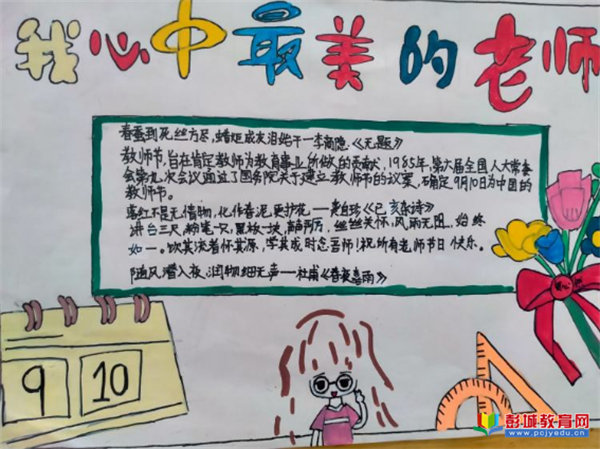 我心中最美的老师
春蚕到死丝方尽,蜡炬成灰泪始干—李商隐《无题》
教师节,旨在肯定教师为教育事业所做的贡献,1985年,第六届全国人大常委
会第九次会议通过了国务院关于建立教师节的议案,确定9月10日为中国的
教师节。
落红不是无情物,化作春泥更护花——龚自珍《已亥杂诗》
讲台三尺,粉笔一只,黑板一块,青丝两历,丝丝关怀,风雨无阻,始终
如一。饮其流者怀其源,学其成时念吾师!祝所有老师节日快乐。
随风潜入夜,润物细无声——杜甫《春夜喜雨》
9
10
彭城教育网
www.pcjyedu.cn